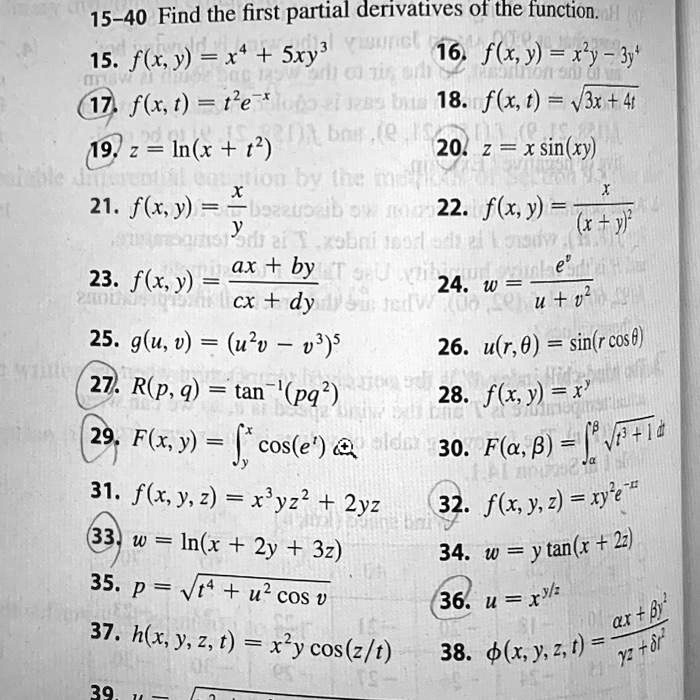 15–40 Find the first partial derivatives of the function.
15. f(x, y) = x⁴ + 5xy³
16. f(x, y) = x²y − 3y⁴
17. f(x, t) = t²e⁻ˣ
18. f(x, t) = √(3x + 4t)
19. z = ln(x + t²)
20. z = x sin(xy)
21. f(x, y) = x/y
22. f(x, y) = x/(x + y)²
23. f(x, y) = (ax + by)/(cx + dy)
24. w = eᵛ/(u + v²)
25. g(u, v) = (u²v − v³)⁵
26. u(r, θ) = sin(r cos θ)
27. R(p, q) = tan⁻¹(pq²)
28. f(x, y) = xʸ
29. F(x, y) = ∫_y^x cos(eᵗ)
30. F(α, β) = ∫_α^β √(t³ + 1) dt
31. f(x, y, z) = x³yz² + 2yz
32. f(x, y, z) = xy²e^(−xz)
33. w = ln(x + 2y + 3z)
34. w = y tan(x + 2z)
35. p = √(t⁴ + u² cos v)
36. u = x^(y/z)
37. h(x, y, z, t) = x²y cos(z/t)
38. ϕ(x, y, z, t) = (αx + βy²)/(γz + δt²)
39.